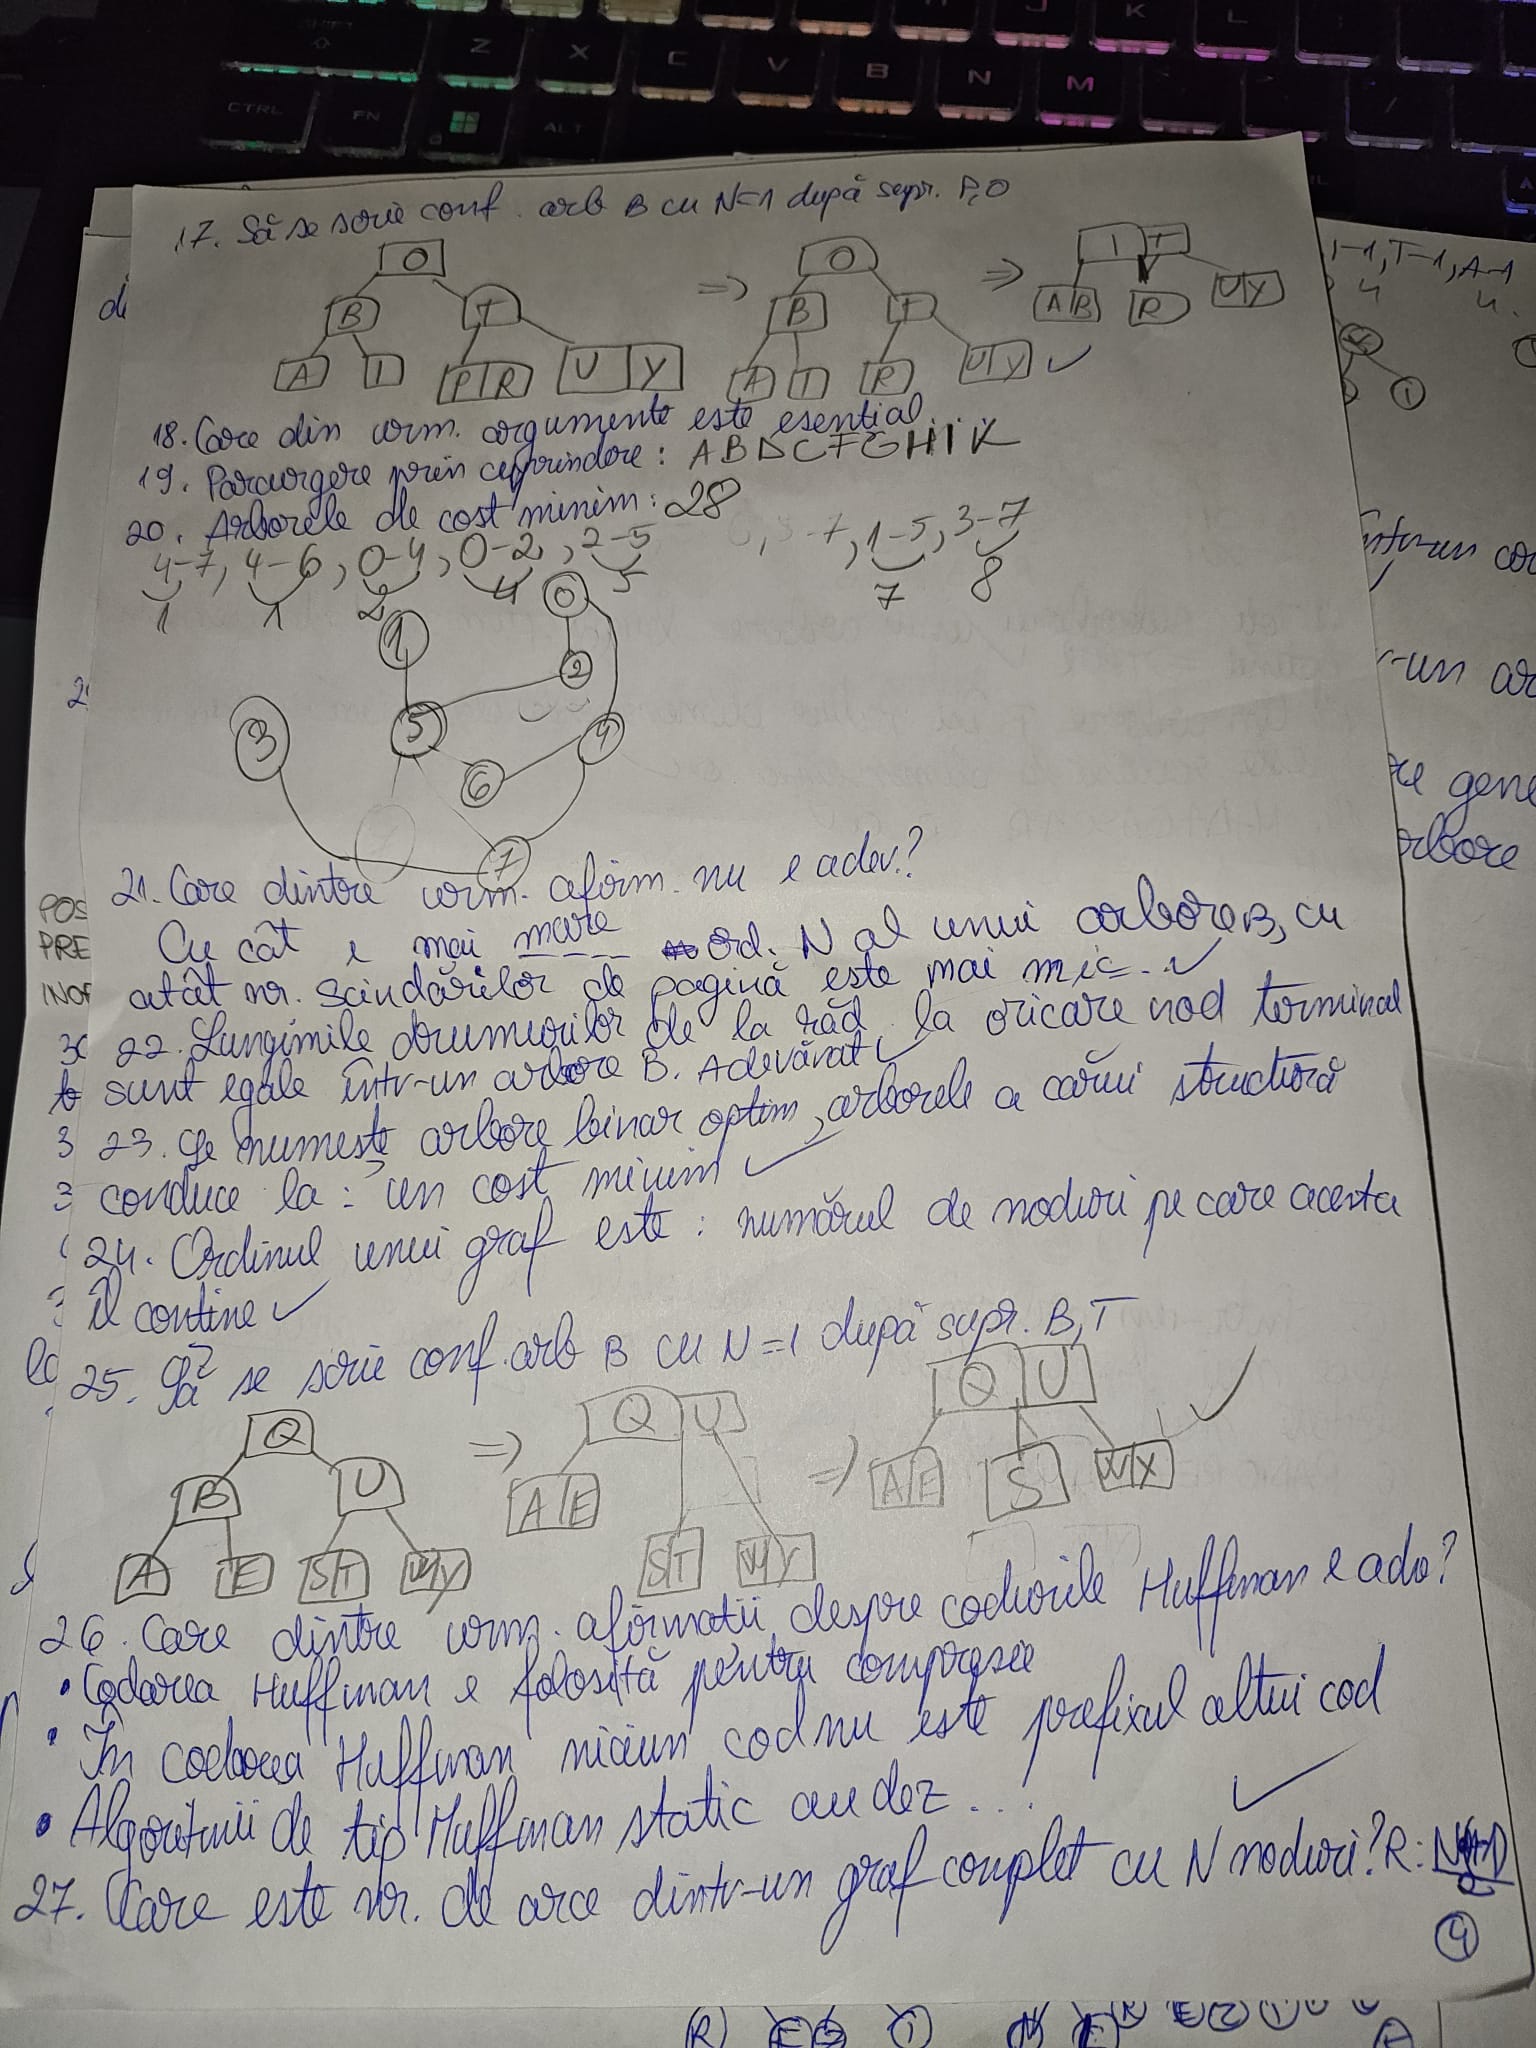 SHIFT
Z X C V B N M
J K L
CTRL FN ALT
/
17. Să se scrie conf. arb B cu N=1 după supr. P,O
O
B T
A I P R U Y
=>
O
B T
A I R U Y
=>
I T
A B R U Y
18. Care din urm. argumente este esential...
19. Parcurgere prin cuprindere: A B D C F E G H I K
20. Arborele de cost minim: 28
4-7, 4-6, 0-4, 0-2, 2-5 1-5, 3-7
1 1 2 4 5 7 8
0
1
2
3 5 4
6
7
21. Care dintre urm. afirm. nu e adev.?
Cu cât e mai mare ord. N al unui arbore B, cu
atât nr. scindărilor de pagină este mai mic...
22. Lungimile drumurilor de la răd. la oricare nod terminal
sunt egale într-un arbore B. Adevărat
23. Se numește arbore binar optim, arborele a cărui structură
conduce la: un cost minim
24. Ordinul unui graf este: numărul de noduri pe care acesta
îl contine
25. Să se scrie conf. arb B cu N=1 după supr. B,T
Q
B U
A E S T W Y
=>
Q U
A E S T W Y
=>
Q U
A E S
26. Care dintre urm. afirmatii despre codurile Huffman e adv?
• Codarea Huffman e folosită pentru compresie
• În codarea Huffman niciun cod nu este prefixul altui cod
• Algoritmii de tip Huffman static au dez...
27. Care este nr. de arce dintr-un graf complet cu N noduri? R:
4
-1, T-1, A-1
4 4
1
într-un
-un
gene
arbore
POS
PRE
INOR
R